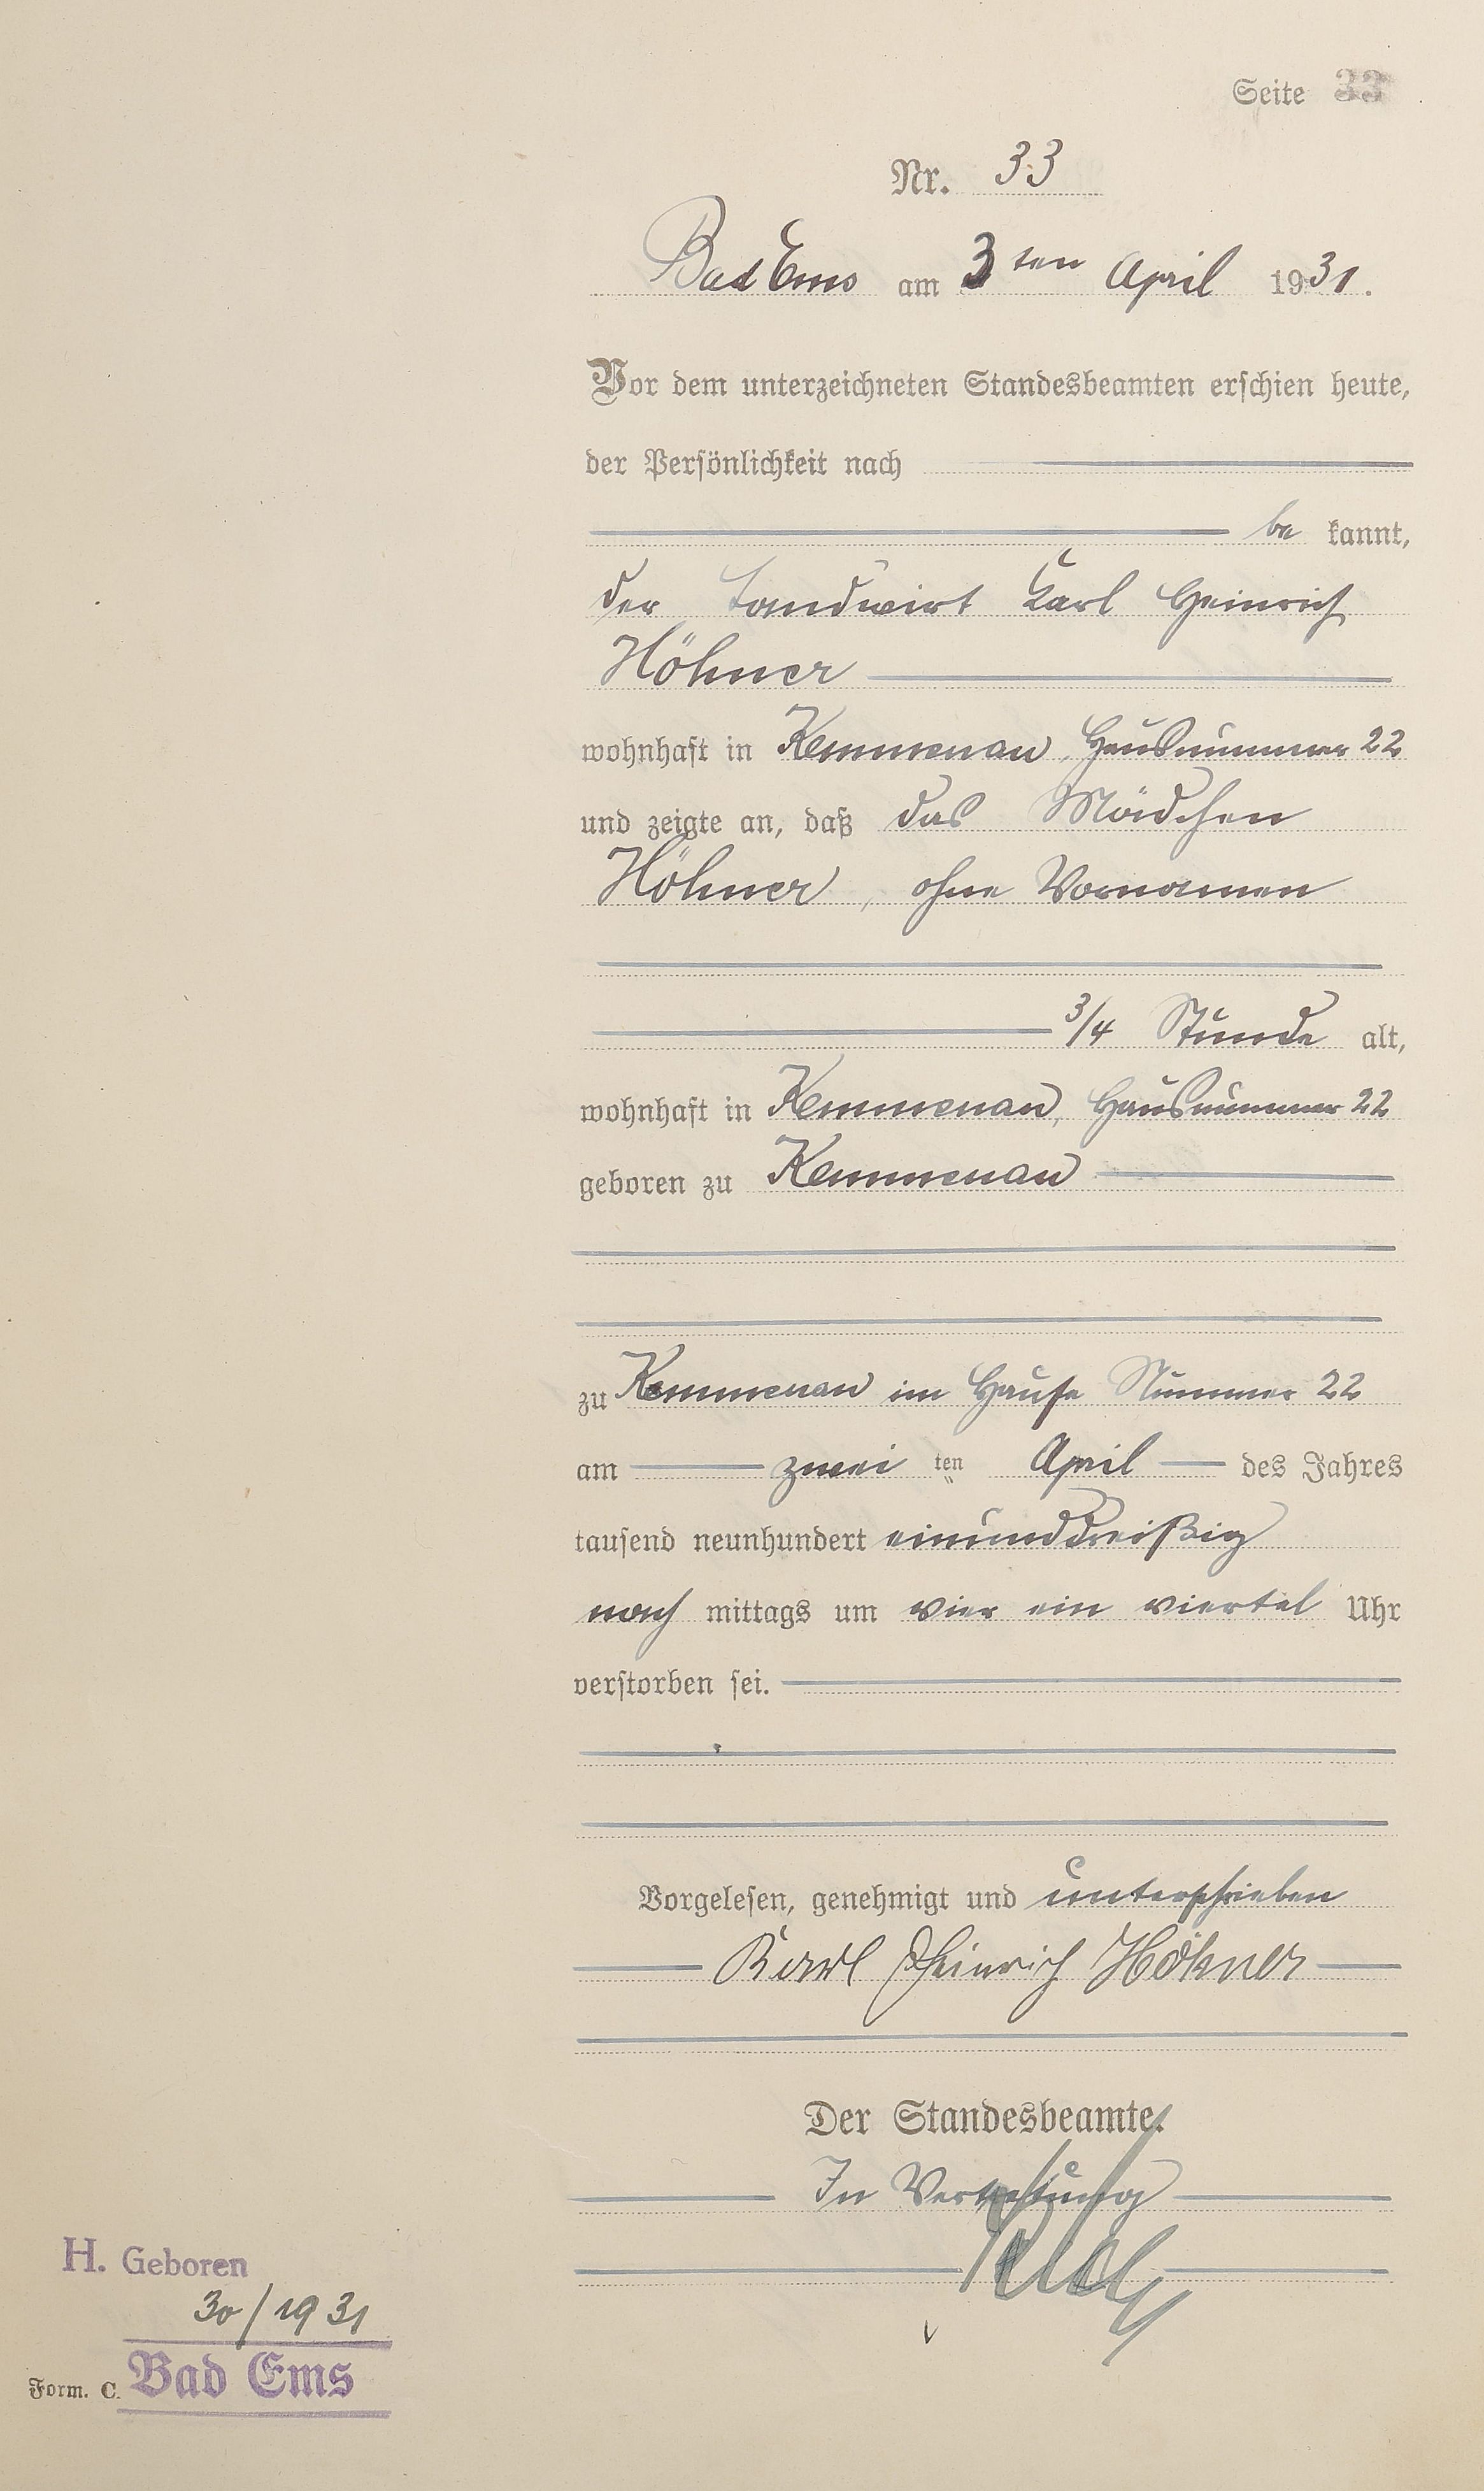 Seite 33
Nr. 33
Bad Ems am 3ten April 1931.
Vor dem unterzeichneten Standesbeamten erschien heute,
der Persönlichkeit nach
be kannt,
der Landwirt Karl Heinrich
Höhner
wohnhaft in Kemmenau, Hausnummer 22
und zeigte an, daß das Mädchen
Höhner, ohne Vornamen
3/4 Stunde alt,
wohnhaft in Kemmenau, Hausnummer 22
geboren zu Kemmenau
zu Kemmenau im Hause Nummer 22
am zwei ten April des Jahres
tausend neunhundert einunddreißig
nach mittags um vier ein viertel Uhr
verstorben sei.
Vorgelesen, genehmigt und unterschrieben
Karl Heinrich Höhner
Der Standesbeamte.
In Vertretung
H. Geboren
30/1931
Form. C. Bad Ems